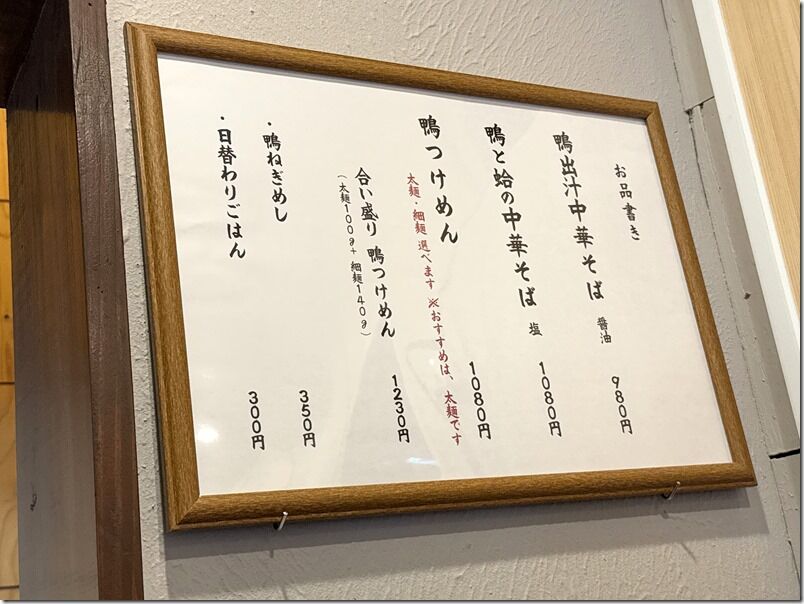 お品書き
鴨出汁中華そば 醤油 980円
鴨と蛤の中華そば 塩 1080円
鴨つけめん 1080円
太麺・細麺 選べます ※おすすめは、太麺です
合い盛り 鴨つけめん 1230円
(太麺100g+細麺140g)
・鴨ねぎめし 350円
・日替わりごはん 300円